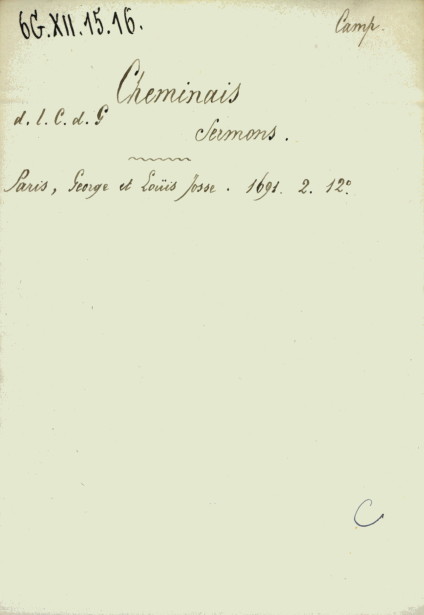 6G.XII.15.16.
Camp.
Cheminais
d. l. C. d. G
Sermons.
Paris, George et Loüis Josse. 1691. 2. 12°
C